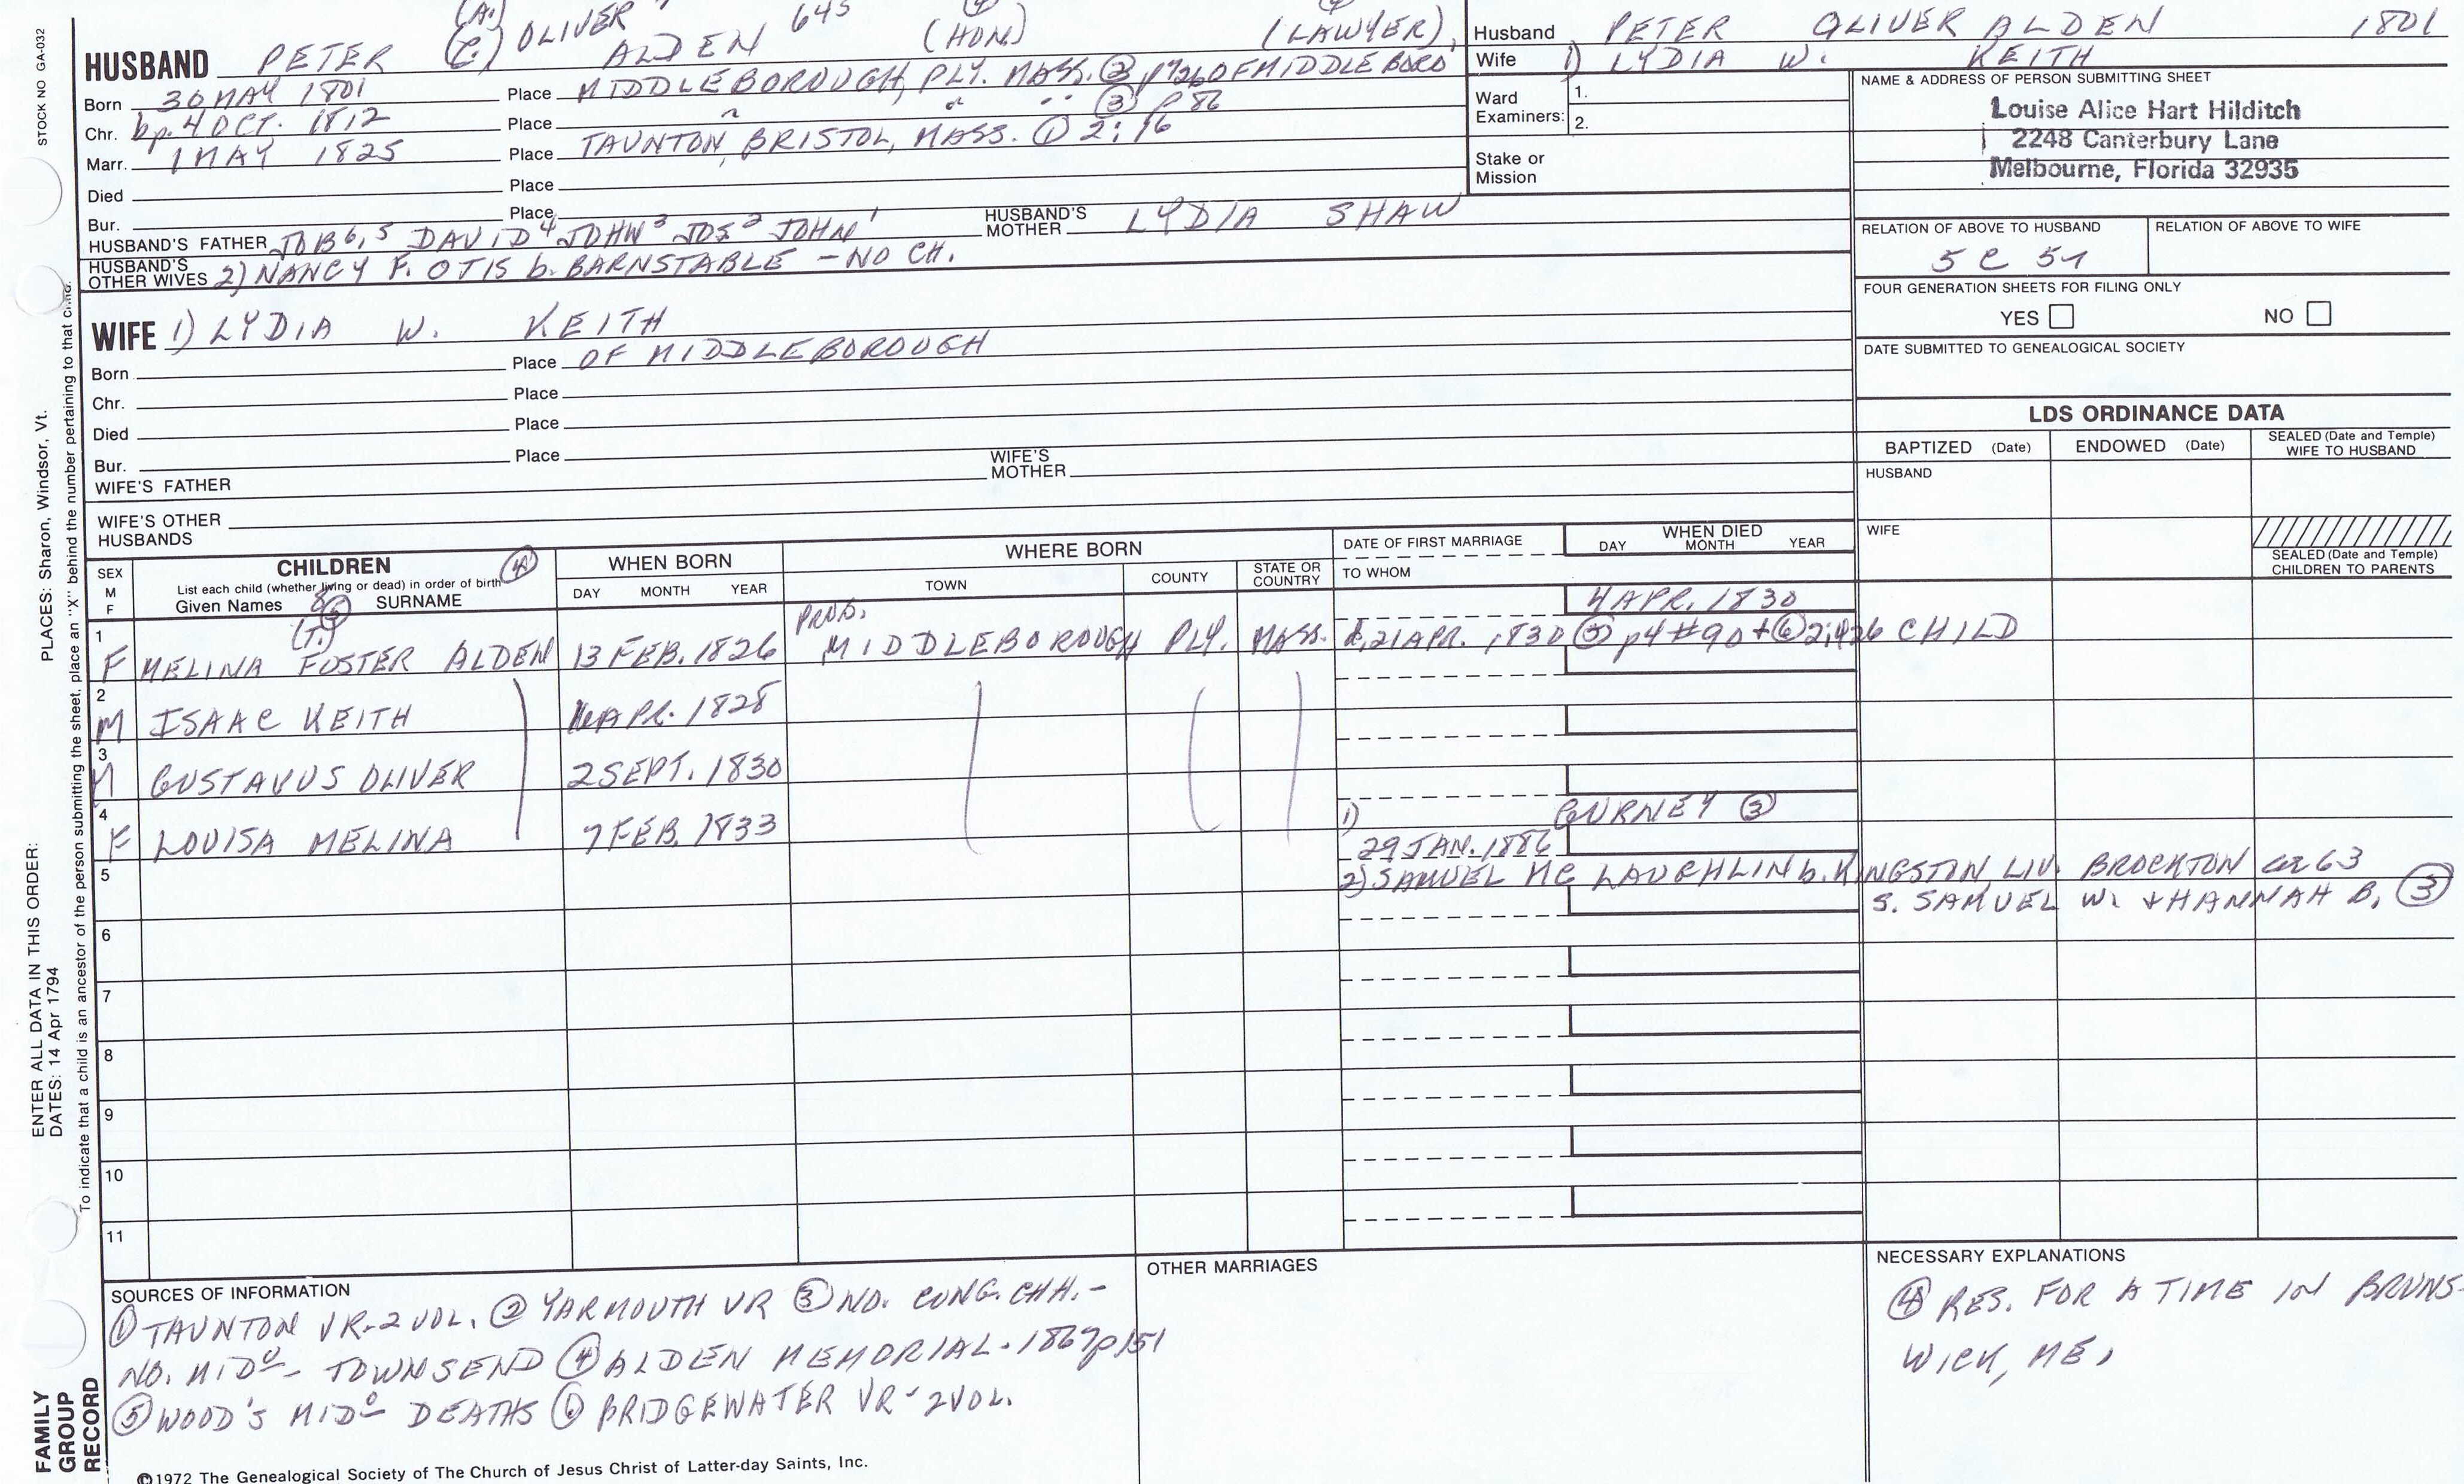 STOCK NO GA-032
PLACES: Sharon, Windsor, Vt.
ENTER ALL DATA IN THIS ORDER:
DATES: 14 Apr 1794
To indicate that a child is an ancestor of the person submitting the sheet, place an "X" behind the number pertaining to that child.
FAMILY GROUP RECORD
(A.)
(C.) OLIVER 645 (4) (4)
HUSBAND PETER ALDEN (HON) (LAWYER),
Born 30 MAY 1801 Place MIDDLEBOROUGH, PLY. MASS. (2) OF MIDDLEBORO
Chr. bp. 4 OCT. 1812 Place " " " (3) p 86
Marr. 1 MAY 1825 Place TAUNTON, BRISTOL, MASS. (1) 2:16
Died Place
Bur. Place
HUSBAND'S FATHER JOB 6,5 DAVID 4 JOHN 3 JOS 2 JOHN 1 HUSBAND'S MOTHER LYDIA SHAW
HUSBAND'S OTHER WIVES 2) NANCY F. OTIS b. BARNSTABLE - NO CH.
WIFE 1) LYDIA W. KEITH
Born Place OF MIDDLEBOROUGH
Chr. Place
Died Place
Bur. Place
WIFE'S FATHER WIFE'S MOTHER
WIFE'S OTHER HUSBANDS
Husband PETER OLIVER ALDEN 1801
Wife 1) LYDIA W. KEITH
Ward Examiners: 1.
2.
Stake or Mission
NAME & ADDRESS OF PERSON SUBMITTING SHEET
Louise Alice Hart Hilditch
2248 Canterbury Lane
Melbourne, Florida 32935
RELATION OF ABOVE TO HUSBAND RELATION OF ABOVE TO WIFE
5 C 5r
FOUR GENERATION SHEETS FOR FILING ONLY
YES NO
DATE SUBMITTED TO GENEALOGICAL SOCIETY
LDS ORDINANCE DATA
BAPTIZED (Date) ENDOWED (Date) SEALED (Date and Temple) WIFE TO HUSBAND
HUSBAND
WIFE
SEALED (Date and Temple) CHILDREN TO PARENTS
SEX M F
CHILDREN (4)
List each child (whether living or dead) in order of birth
Given Names SURNAME
WHEN BORN
DAY MONTH YEAR
WHERE BORN
TOWN COUNTY STATE OR COUNTRY
DATE OF FIRST MARRIAGE
TO WHOM
WHEN DIED
DAY MONTH YEAR
4 APR. 1830
(T.) PROB.
1 F MELINA FOSTER ALDEN 13 FEB. 1826 MIDDLEBOROUGH PLY. MASS. 21 APR. 1830 (5) p4 #90 + (6) 2:426 CHILD
2 M ISAAC KEITH APR. 1828
3 M GUSTAVUS OLIVER 2 SEPT. 1830
4 F LOUISA MELINA 7 FEB. 1833 1) GURNEY (3)
29 JAN. 1886
2) SAMUEL MC LAUGHLIN b. KINGSTON LIV. BROCKTON ae 63
5 S. SAMUEL W. + HANNAH B. (3)
6
7
8
9
10
11
SOURCES OF INFORMATION
(1) TAUNTON VR-2 VOL. (2) YARMOUTH VR (3) NO. CONG. CHH. -
NO. MIDº - TOWNSEND (4) ALDEN MEMORIAL - 1867 p151
(5) WOOD'S MIDº DEATHS (6) BRIDGEWATER VR - 2 VOL.
OTHER MARRIAGES
NECESSARY EXPLANATIONS
(4) RES. FOR A TIME IN BRUNS-
WICK, ME.
©1972 The Genealogical Society of The Church of Jesus Christ of Latter-day Saints, Inc.